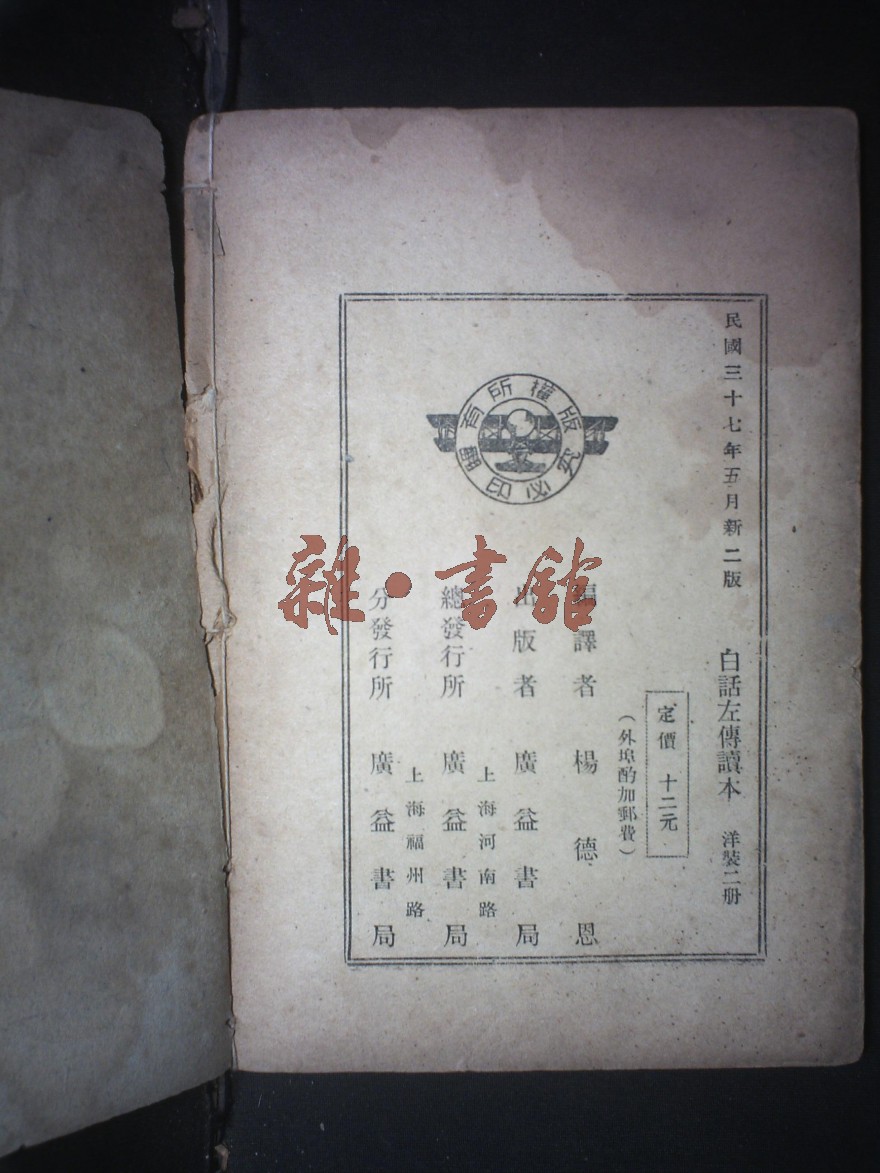 民國三十七年五月新二版
白話左傳讀本 洋裝二册
定價 十二元
(外埠酌加郵費)
編譯者 楊德恩
出版者 廣益書局
上海河南路
總發行所 廣益書局
上海福州路
分發行所 廣益書局
版權所有
翻印必究
雜·書館